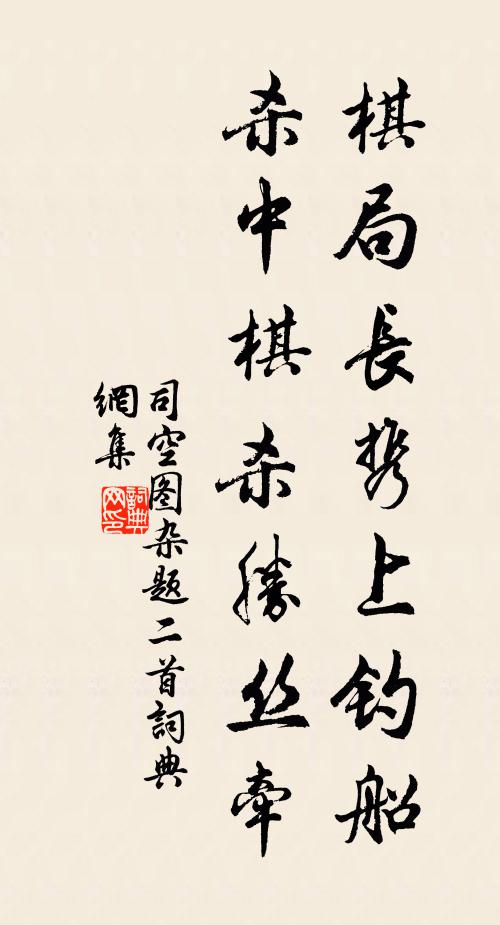 棋局長携上钓船
杀中棋杀勝丝牽
司空图杂题二首詞典
網集
詞典网印